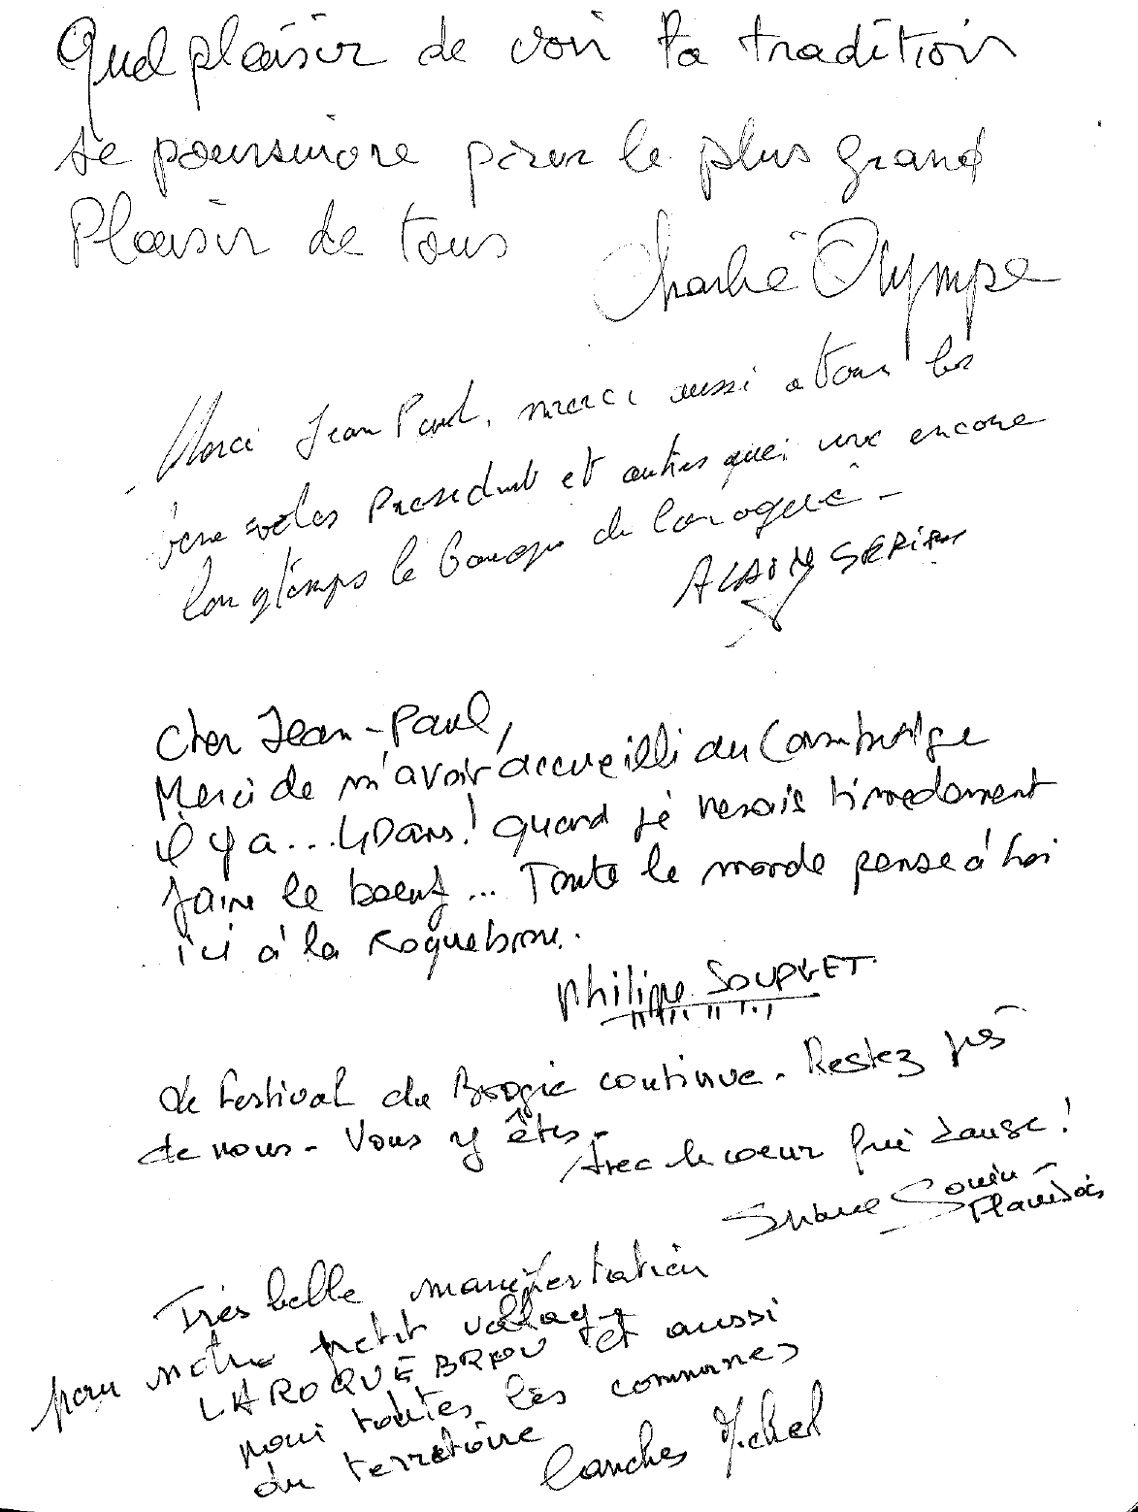 Quel plaisir de voir ta tradition
se poursuivre pour le plus grand
Plaisir de tous
Charlie Olympe
Merci Jean Paul, merci aussi a tous les
benevoles President et autres que vive encore
longtemps le boogie de Laroque -
ALAIN
Cher Jean-Paul,
Merci de m'avoir accueilli au Cambridge
il y a... 40 ans! quand je venais timidement
faire le boeuf... Toute le monde pense à toi
ici à la Roquebrou.
Philippe SOUPLET.
Le Festival du Boogie continue. Restez près
de nous - Vous y êtes -
Avec le coeur qui danse!
Très belle manifestation
pour notre petit village
LAROQUEBROU et aussi
pour toutes les communes
du territoire
Canches Michel